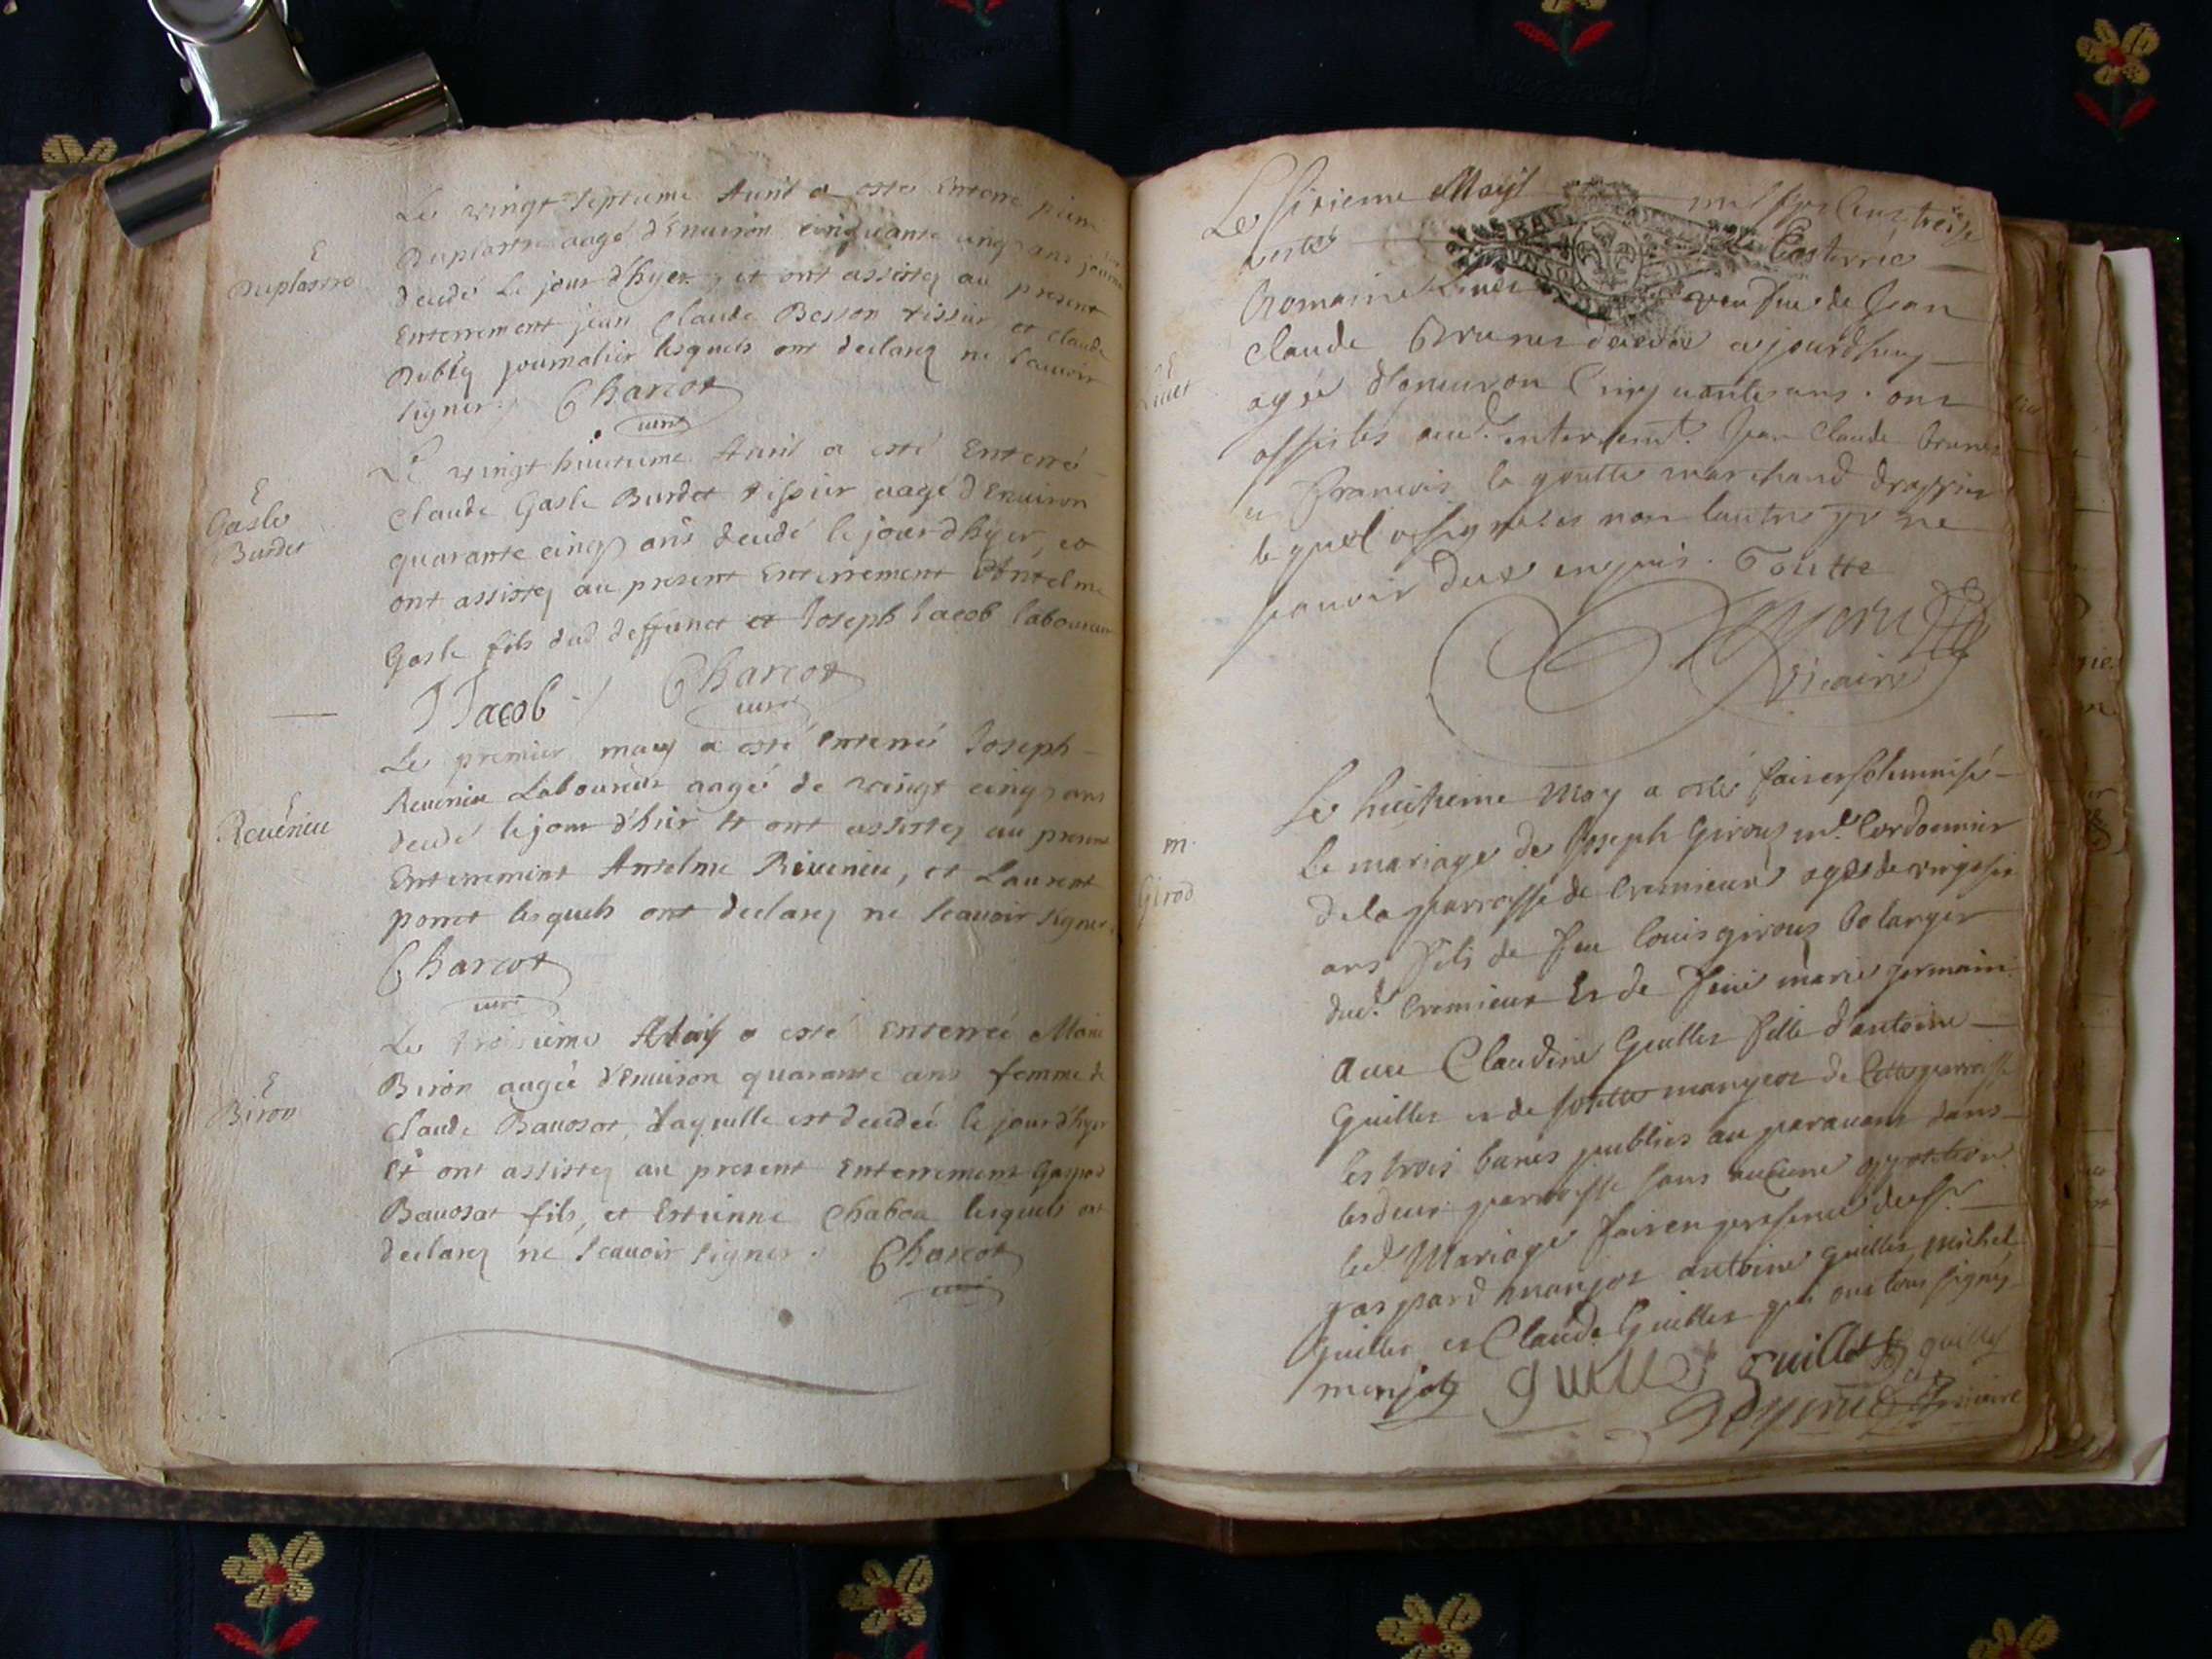 Le vingt septieme Auril a esté Enterré pierre
E
Duplastre
Duplastre aagé d'Enuiron cinquante cinq ans
decedé le jour d'hyer, et ont assistez au present
Enterrement jean Claude Besson tissier et claude
journalier lesquels ont declarez ne scauoir
signer. Charcot
curé
Le vingt huictieme Auril a esté Enterré
E
Gasle
Burdet
Claude Gasle Burdet tissier aagé d'Enuiron
quarante cinq ans decedé le jour d'hyer, et
ont assistez au present Enterrement Antelme
Gasle fils dud deffunct et Joseph Jacob laboureur
J Jacob Charcot
curé
Le premier may a esté Enterré Joseph
E
Reuenieu
Reuenieu Laboureur aagé de vingt cinq ans
decedé le jour d'hier Et ont assistez au present
Enterrement Anselme Reuenieu, et Laurent
ponet lesquels ont declarez ne scauoir signer.
Charcot
curé
Le troisieme May a esté Enterrée Marie
E
Biron
Biron aagée d'Enuiron quarante ans femme de
Claude Bauosat, Laquelle est decedeé le jour d'hyer
Et ont assistez au present Enterrement Gaspard
Bauosat fils, et Estienne Chabou lesquels ont
declarez ne scauoir signer. Charcot
curé
Le sixieme May mil sept cens treise
a esté Enterrée
Romaine veufue de Jean
Claude Brunet decedée ajourdhuy
agée d'enuiron Cinquante ans. ont
assistés aud. enterremt. Jean Claude brunet
et François la goutte marchand drappier
lequel a signé et non lautre pr ne
scauoir deux enquis. Goutte
Peyrieu
Vicaire
Le huitieme May a esté fait et solemnisé
m.
Girod
Le mariage de Joseph Giroud md. Cordonnier
de la parroisse de Cremieux agé de vingt six
ans fils de feu Louis giroud bolanger
dud. Cremieux Et de feüe marie germain
auec Claudine Guillet fille d'antoine
Guillet et de manjot de Cette parroisse
les trois bancs publiés au parauant dans
les deux parroisse sans aucune opotition
led. Mariage fait en presence de sr.
gaspard manjot antoine guillet, michel
guillet et Claude Guillet qui ont tous signés
manjot guillot guillot guillot
Peyrieu vicaire